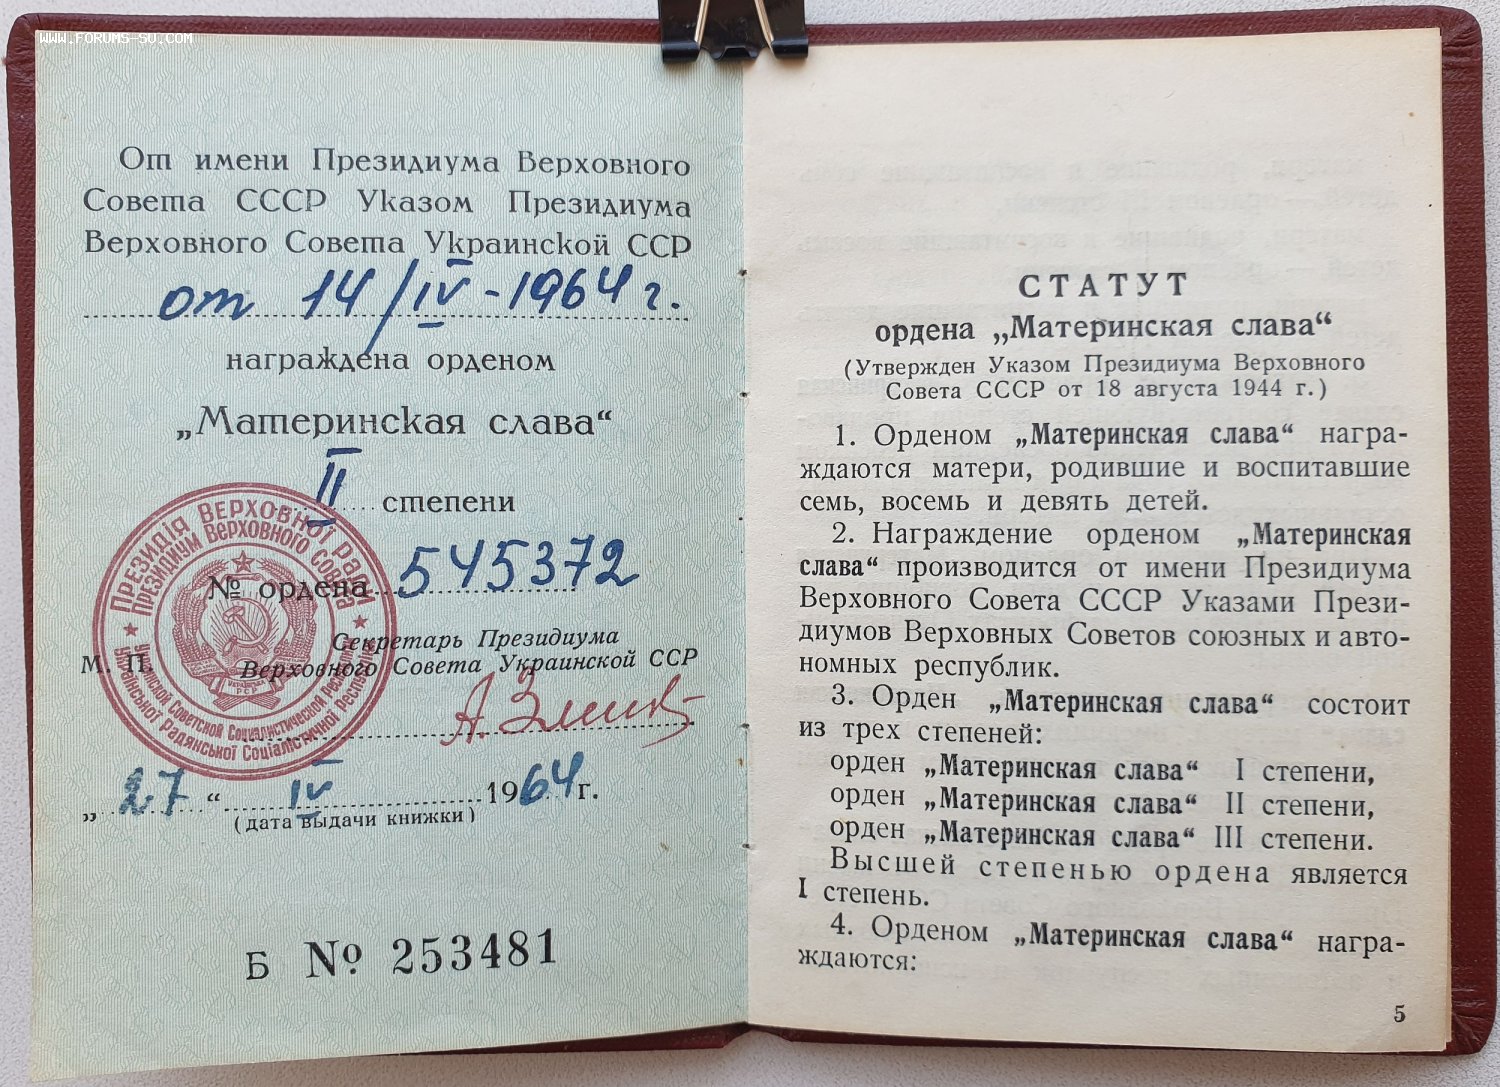 www.forums-su.com
От имени Президиума Верховного
Совета СССР Указом Президиума
Верховного Совета Украинской ССР
от 14/IV-1964 г.
награждена орденом
„Материнская слава“
II степени
№ ордена 545372
Секретарь Президиума
М. П. Верховного Совета Украинской ССР
„27“ IV 1964 г.
(дата выдачи книжки)
Б № 253481
Президія Верховної Ради
Української Радянської Соціалістичної Республіки
Президиум Верховного Совета
Украинской Советской Социалистической Республики
СТАТУТ
ордена „Материнская слава“
(Утвержден Указом Президиума Верховного
Совета СССР от 18 августа 1944 г.)
1. Орденом „Материнская слава“ награ-
ждаются матери, родившие и воспитавшие
семь, восемь и девять детей.
2. Награждение орденом „Материнская
слава“ производится от имени Президиума
Верховного Совета СССР Указами Прези-
диумов Верховных Советов союзных и авто-
номных республик.
3. Орден „Материнская слава“ состоит
из трех степеней:
орден „Материнская слава“ I степени,
орден „Материнская слава“ II степени,
орден „Материнская слава“ III степени.
Высшей степенью ордена является
I степень.
4. Орденом „Материнская слава“ награ-
ждаются:
5